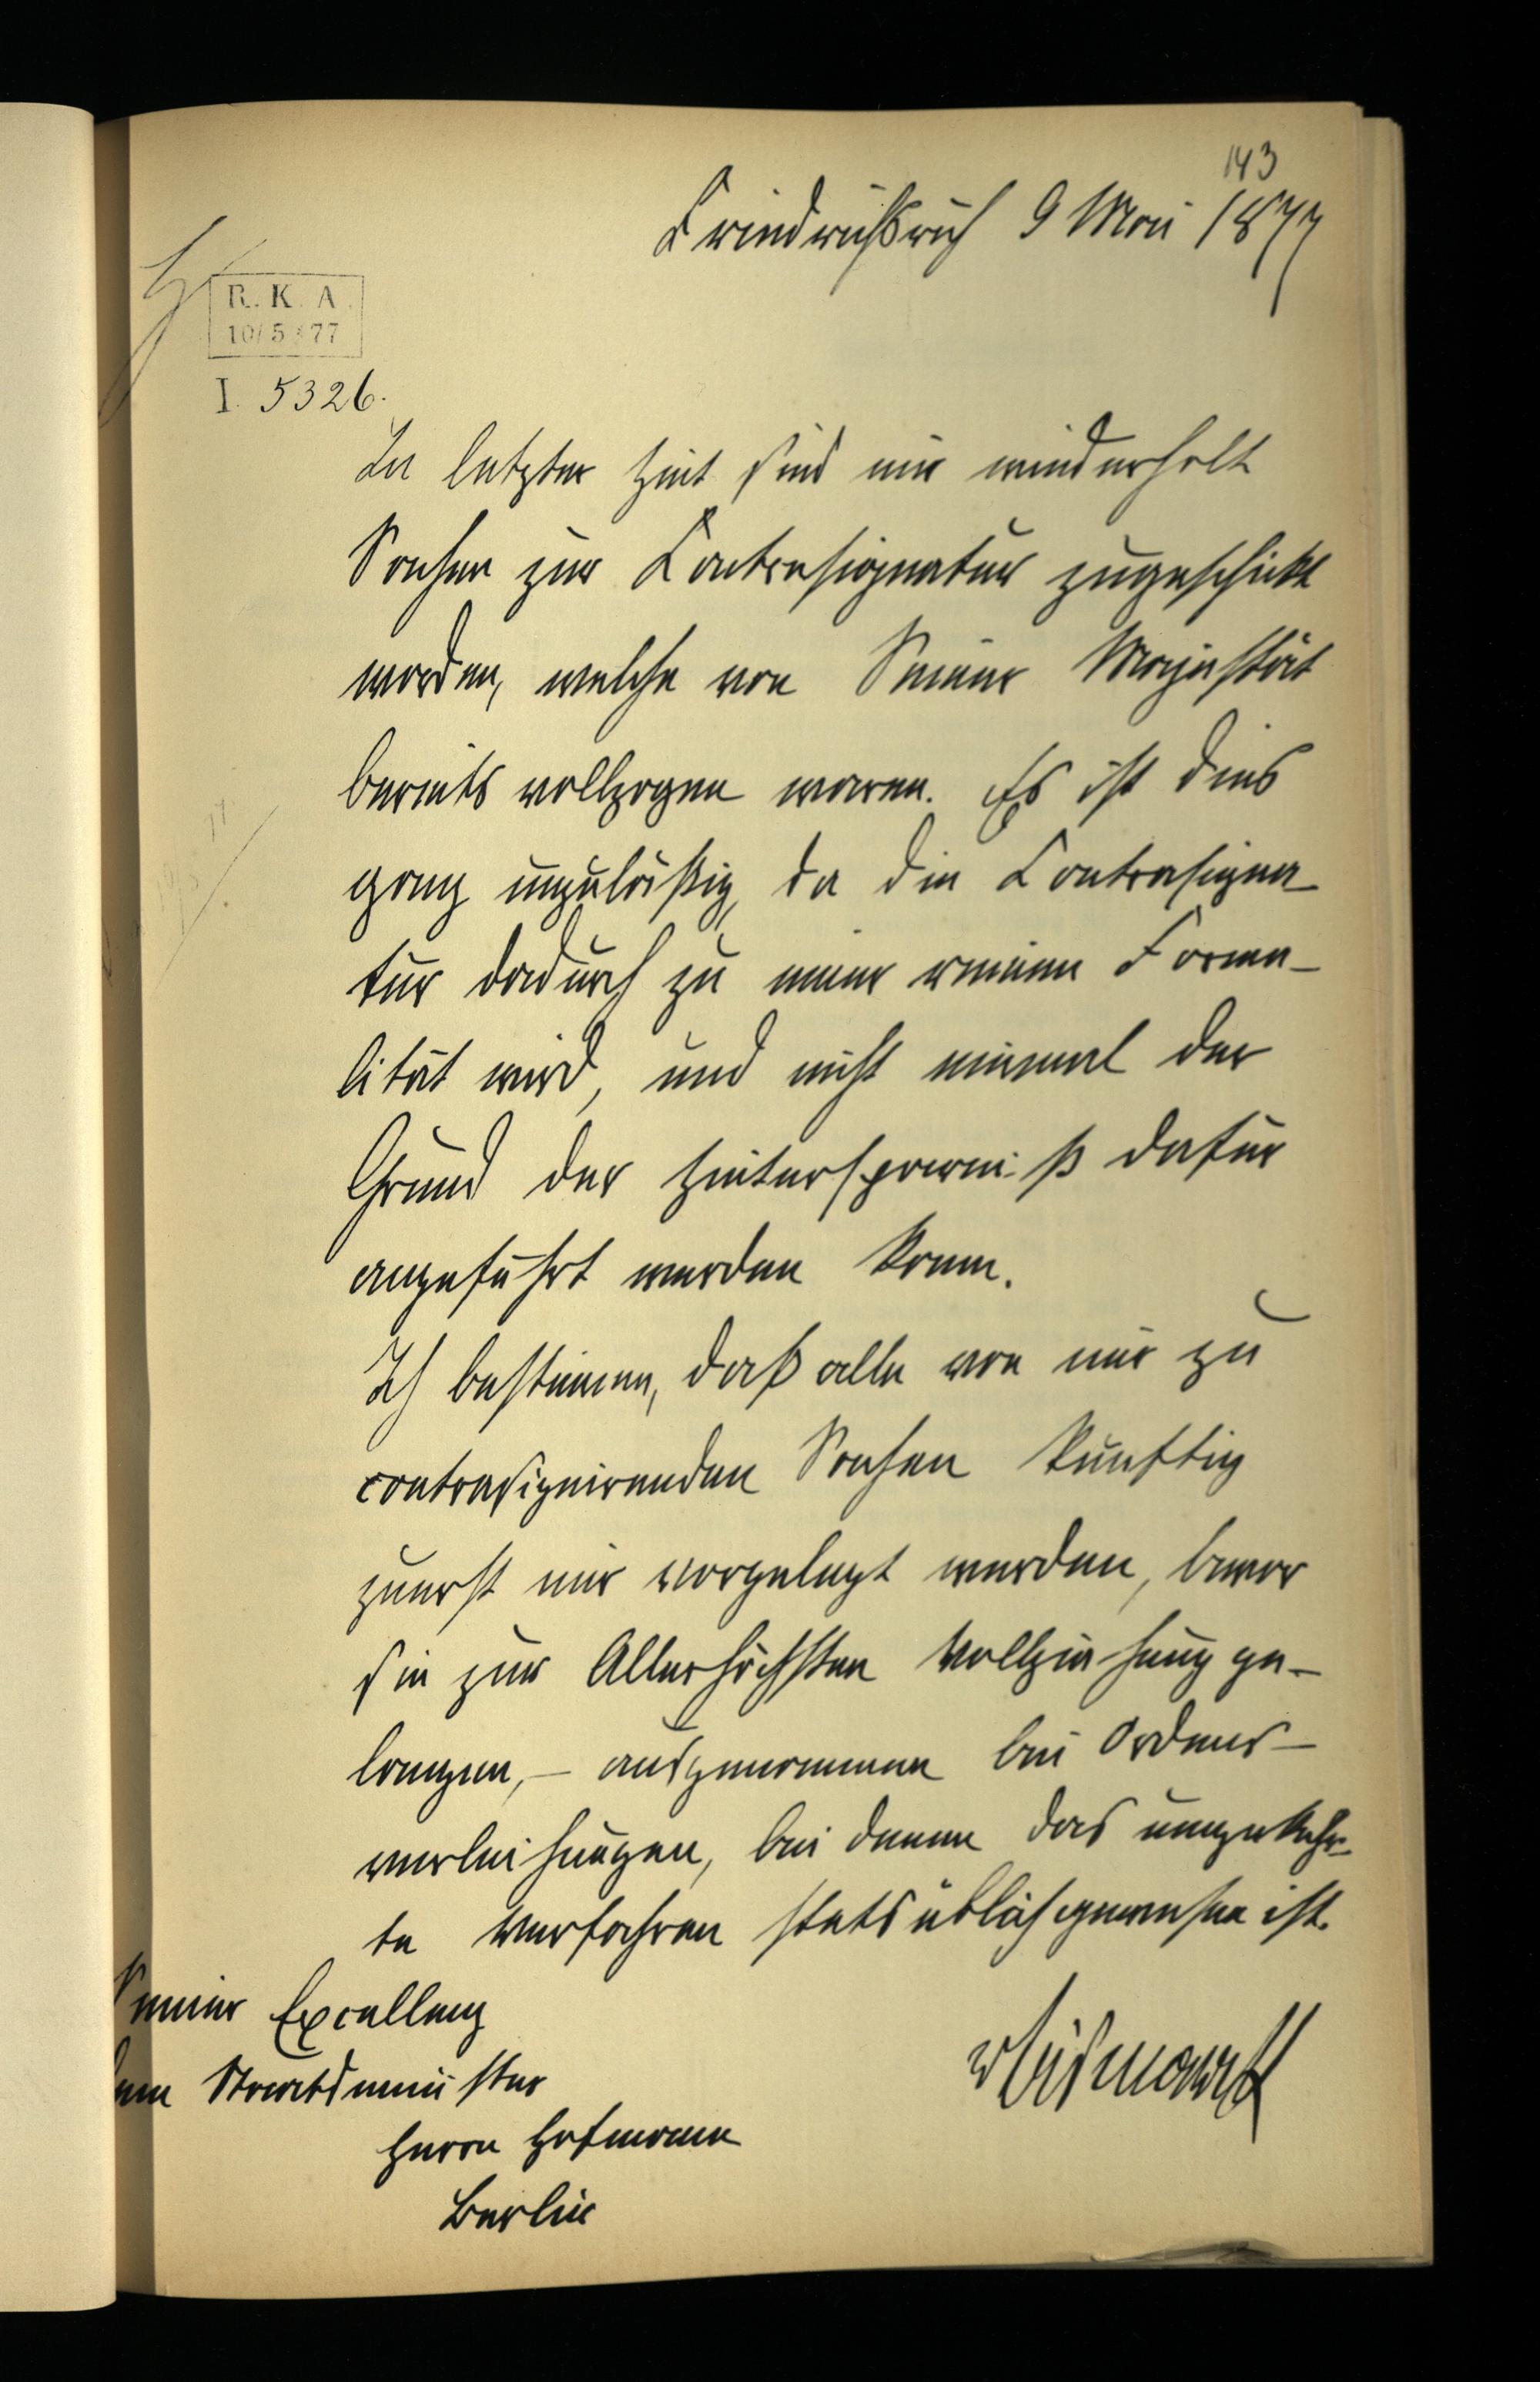 143
Friedrichsruh 9 Mai 1877
R. K. A.
10/5 77
I. 5326.
In letzter Zeit sind mir wiederholt
Sachen zur Contrasignatur zugeschickt
worden, welche von Seiner Majestät
bereits vollzogen waren. Es ist dies
ganz unzuläßig, da die Contrasigna-
tur dadurch zu einer reinen Forma-
lität wird, und nicht einmal der
Grund der Zeitersparniß dafür
angeführt werden kann.
Ich bestimme, daß alle von mir zu
contrasignirenden Sachen künftig
zuerst mir vorgelegt werden, bevor
sie zur Allerhöchsten Vollziehung ge-
langen, – ausgenommen bei Ordens-
verleihungen, bei denen das umgekehr-
te Verfahren stets üblich gewesen ist.
Seiner Excellenz
dem Staatsminister
Herrn Hofmann
Berlin
vBismarck